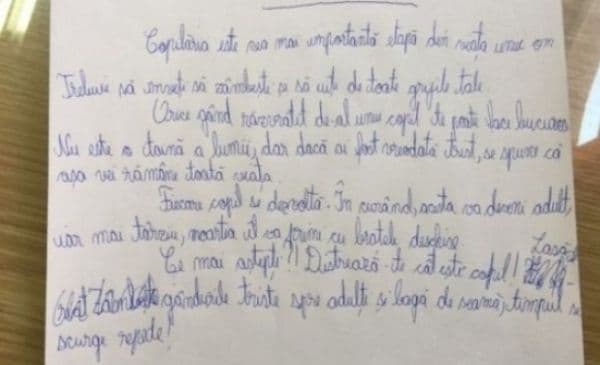 Copilăria este cea mai importantă etapă din viața unui om
Trebuie să înveți să zâmbești și să uiți de toate grijile tale.
Orice gând răzvrătit de-al unui copil te poate face bucuros
Nu este o taină a lumii, dar dacă ai fost vreodată trist, se spune că
așa vei rămâne toată viața.
Fiecare copil se dezvoltă. În curând, acesta va deveni adult,
iar mai târziu, moartea îl va primi cu brațele deschise.
Ce mai aștepți?! Distrează-te cât ești copil! Lasă-
Zâmbește gândurile triste spre adulți și bagă de seamă, timpul se
scurge repede!